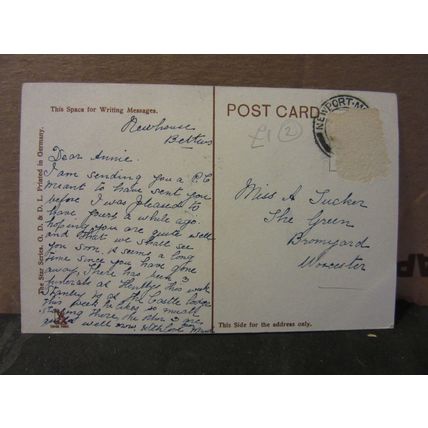 This Space for Writing Messages.
Newhouse
Bettws
Dear Annie.
I am sending you a P.C
meant to have sent you
before I was pleased to
have yours a while ago
hoping you are quite well
and that we shall see
you soon. it seems a long
time since you have gone
away. There has been 3
funerals at this week
Stanley is at the Castle
this week he likes so much
staying there, the other 3 are
quite well now. With love from
The Star Series. G. D. & D. L. Printed in Germany.
POST CARD
£1 (2)
NEWPORT-M
Miss A Tucker
The Green
Bromyard
Worcester
This Side for the address only.